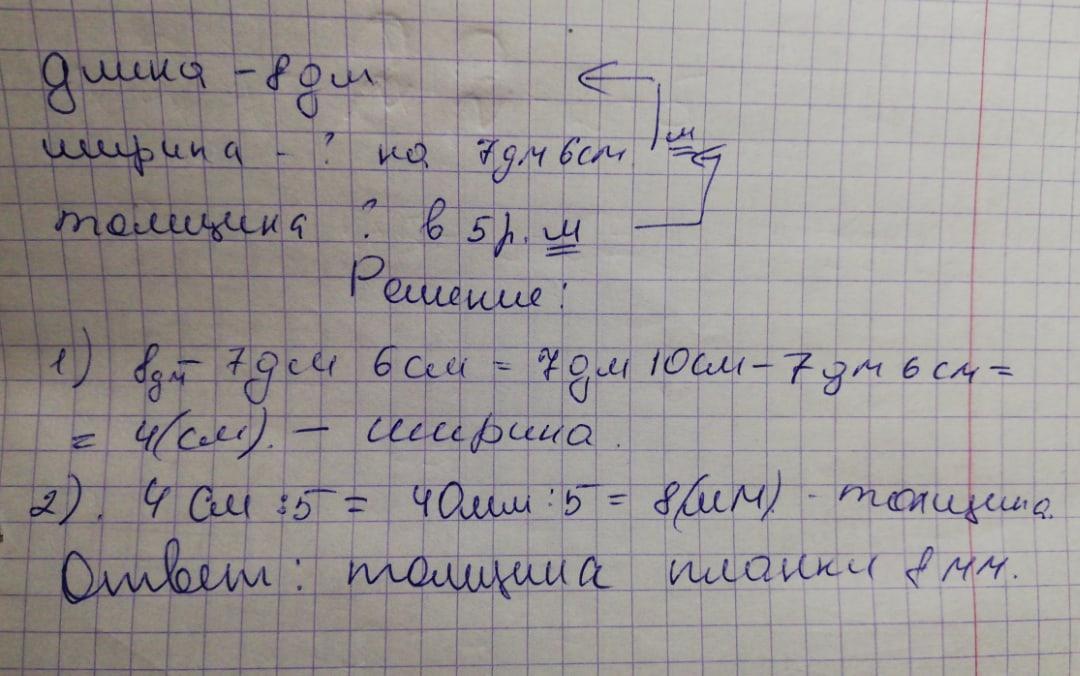 длина - 8 дм
ширина - ? на 7дм 6см м
толщина ? в 5 р. м
Решение:
1) 8дм - 7дм 6см = 7дм 10см - 7дм 6см =
= 4(см). - ширина.
2). 4 см : 5 = 40мм : 5 = 8(мм) - толщина.
Ответ: толщина планки 8 мм.